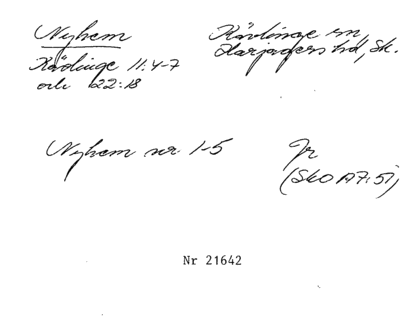 Nyhem
Kävlinge sn,
Harjagers hd, Sk.
Kävlinge 11:4-7
och 22:18
Nyhem nr. 1-5
Jr
(SkO A7:51)
Nr 21642